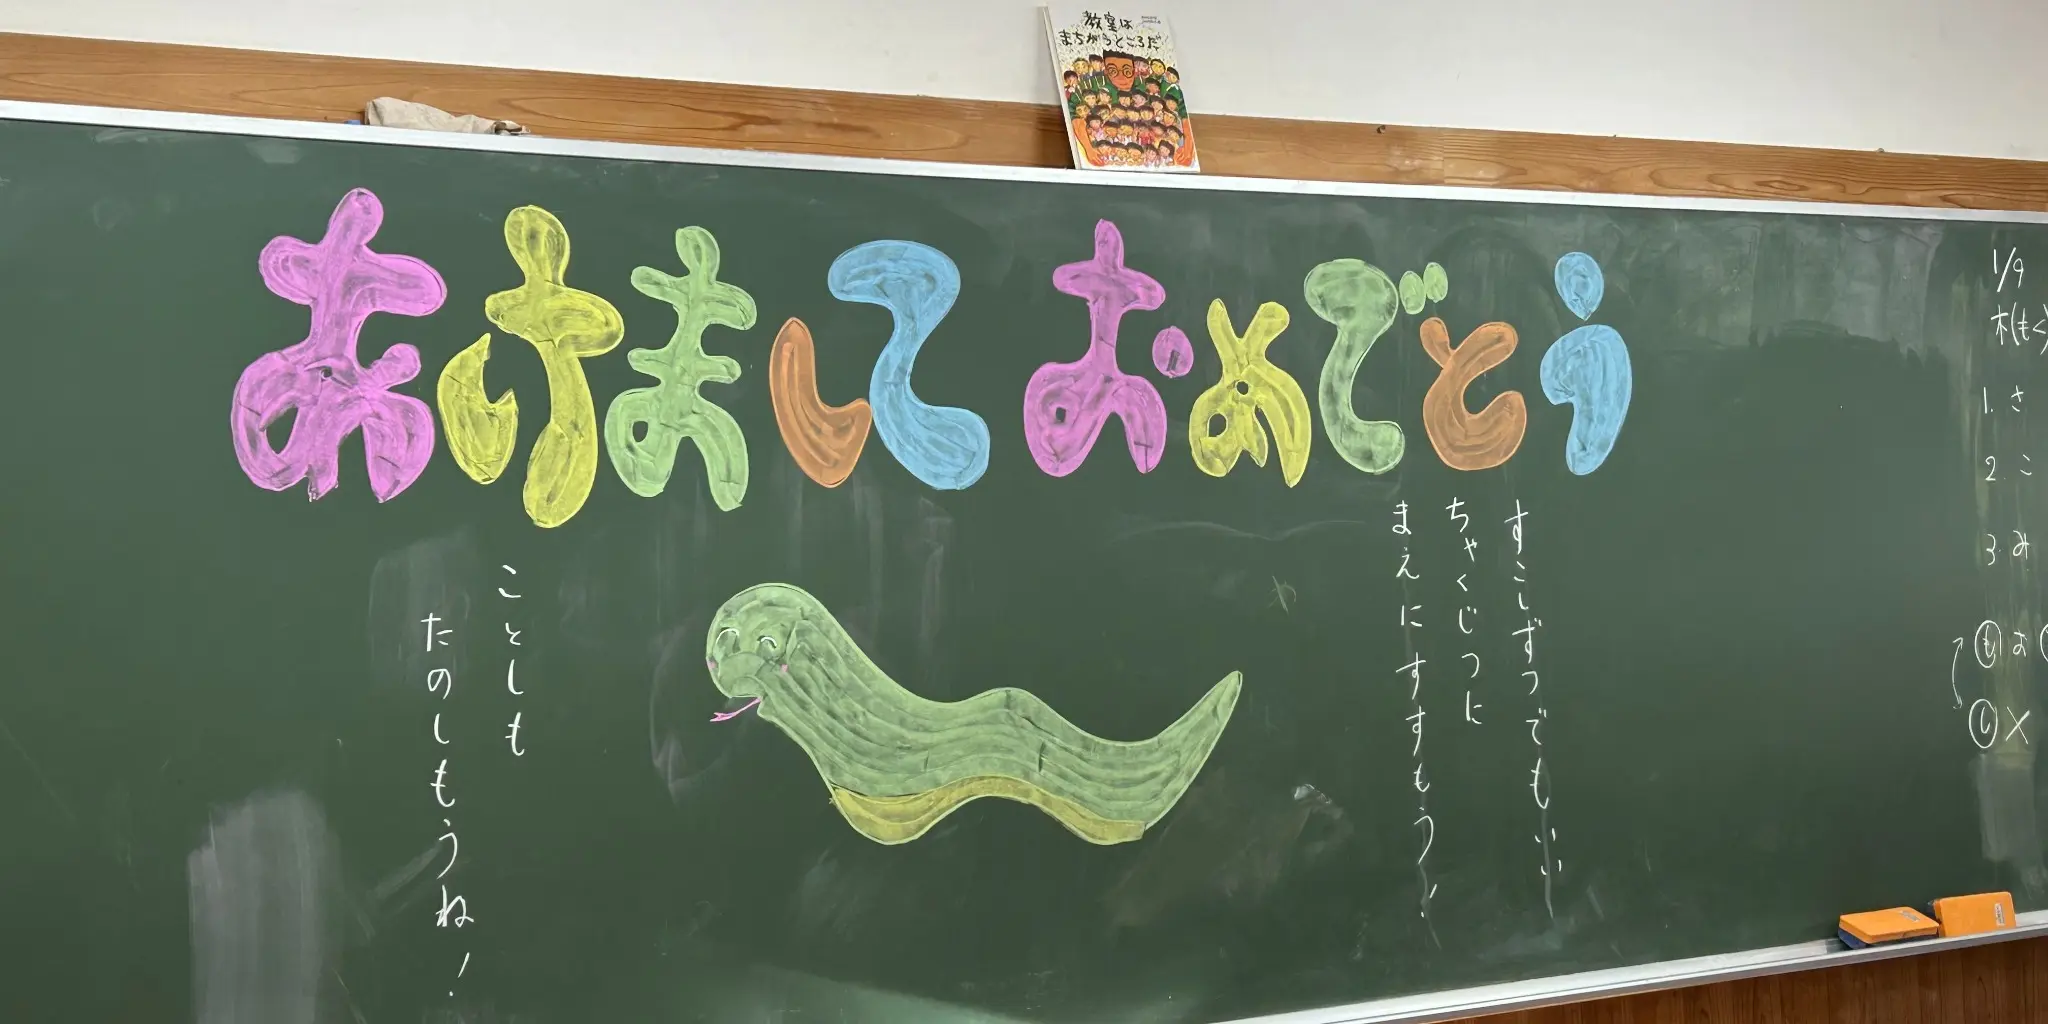 教室は
まちがうところだ
あけましておめでとう
すこしずつでもいい
ちゃくじつに
まえにすすもう!
ことしも
たのしもうね!
1/9
木(もく)
1. さ
2. こ
3. み
も お
し X